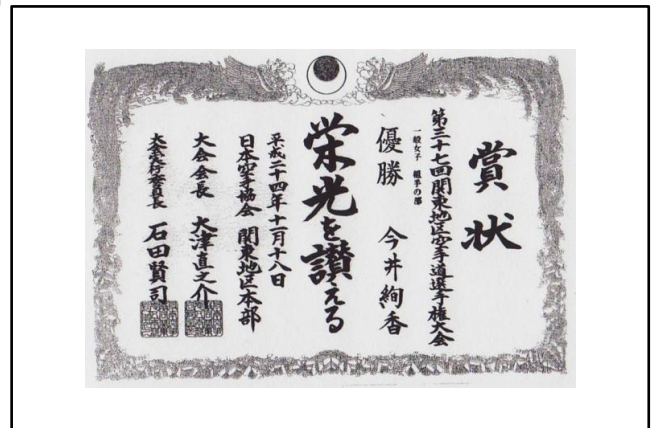 賞状
第三十七回関東地区空手道選手権大会
一般女子 組手の部
優勝 今井絢香
栄光を讃える
平成二十四年十一月十八日
日本空手協会 関東地区本部
大会会長 大津直之介
大会実行委員長 石田賢司